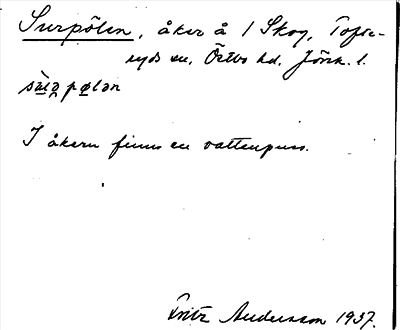 Surpölen, åker å 1 Skog, Tofte-
ryds sn, Östbo hd, Jönk. l.
I åkern finns en vattenpuss.
Fritz Andersson 1937.